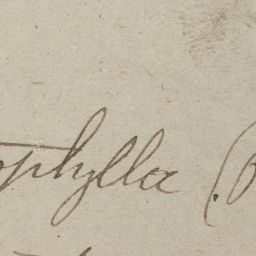 ophylla (